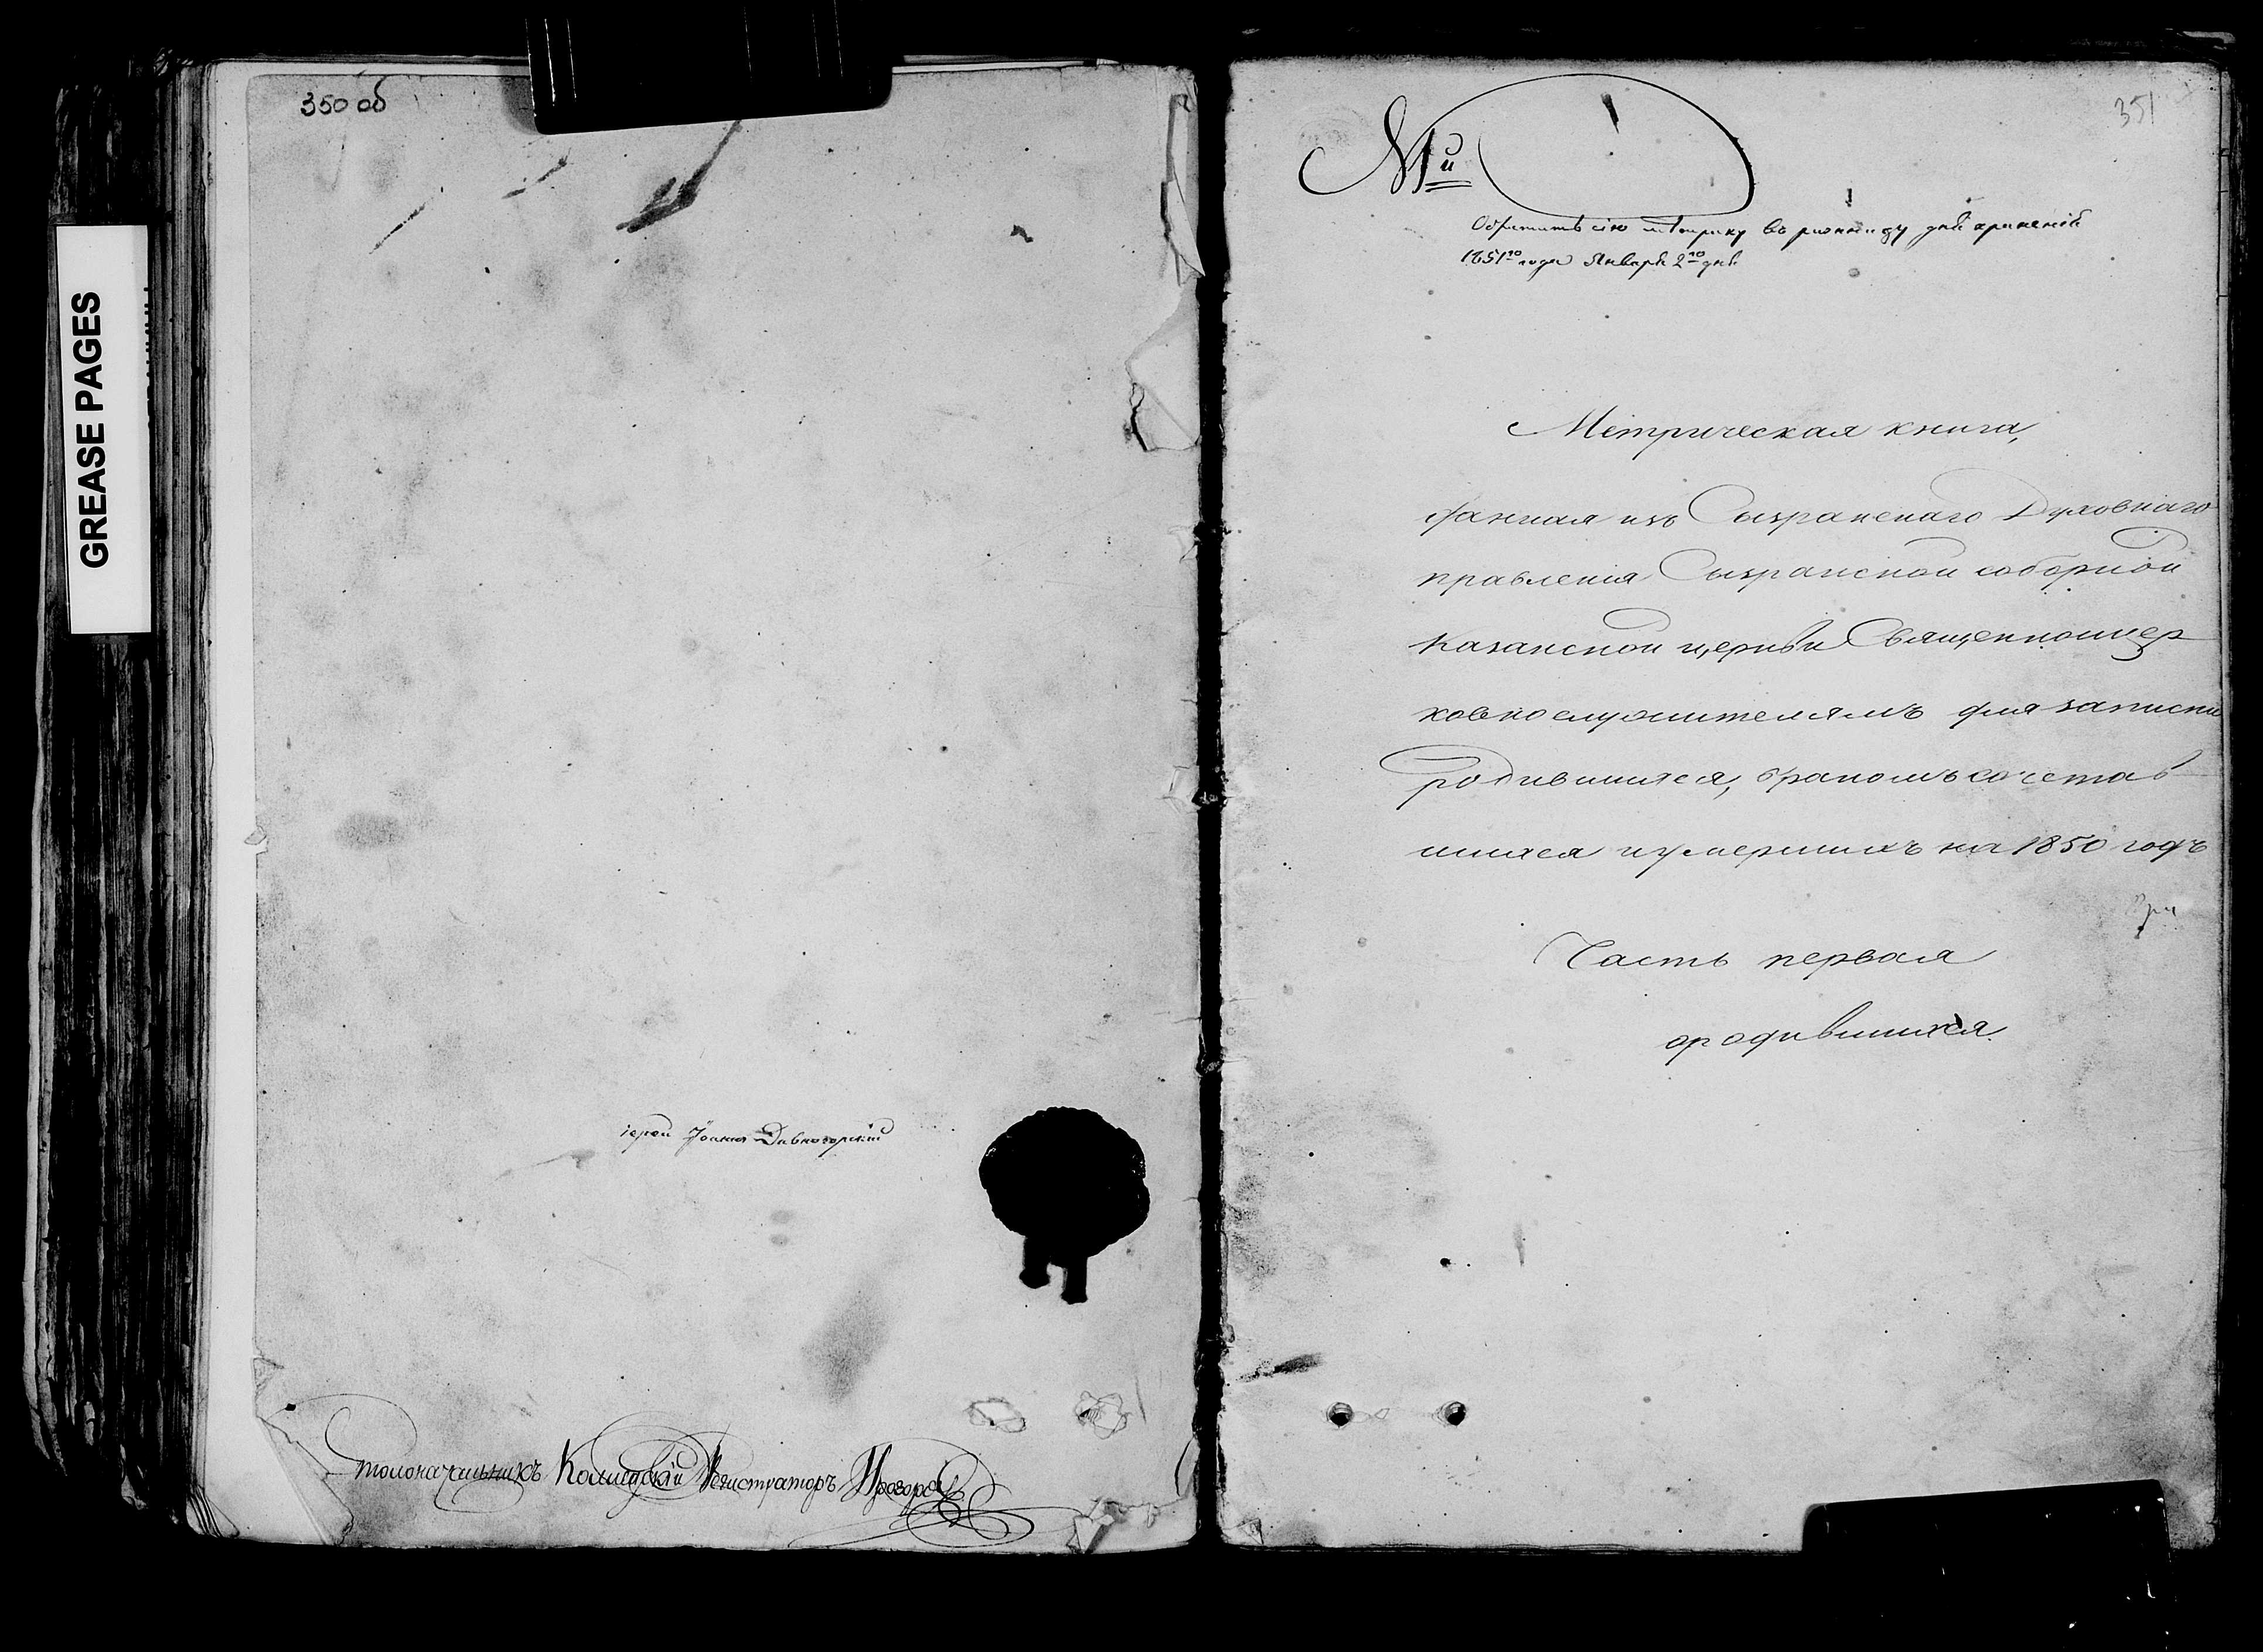 GREASE PAGES
350 об
іерей Іоаннъ Дивногорскій
Столоначальникъ Коллежскій Регистраторъ Прозоровъ
351
№ 1й
Обратить сію метрику въ ризницу для храненія
1851го года Января 2го дня
Метрическая книга,
данная изъ Сызранскаго Духовнаго
правленія Сызранской соборной
Казанской церкви Священноцер
ковнослужителямъ для записки
родившихся, бракомъ сочетав
шихся и умершихъ на 1850 годъ
Часть первая
о родившихся.